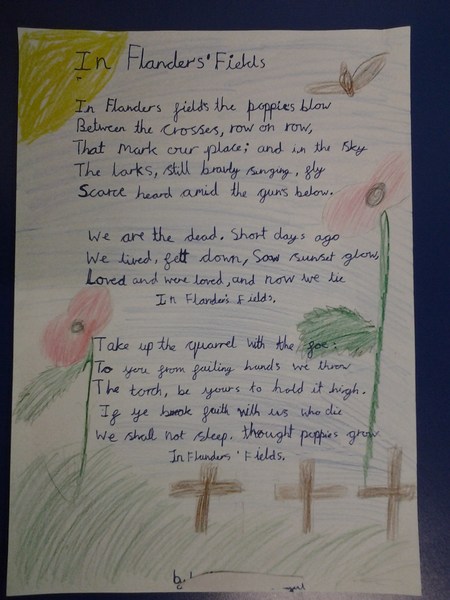 In Flanders' Fields
In Flanders fields the poppies blow
Between the crosses, row on row,
That mark our place; and in the sky
The larks, still bravly singing, fly
Scarce heard amid the guns below.
We are the dead. Short days ago
We lived, felt down, Saw sunset glow,
Loved and were loved, and now we lie
In Flanders Fields.
Take up the quarrel with the foe:
To you from failing hands we throw
The torch, be yours to hold it high.
If ye break faith with us who die
We shall not sleep. thought poppies grow
In Flanders' Fields.